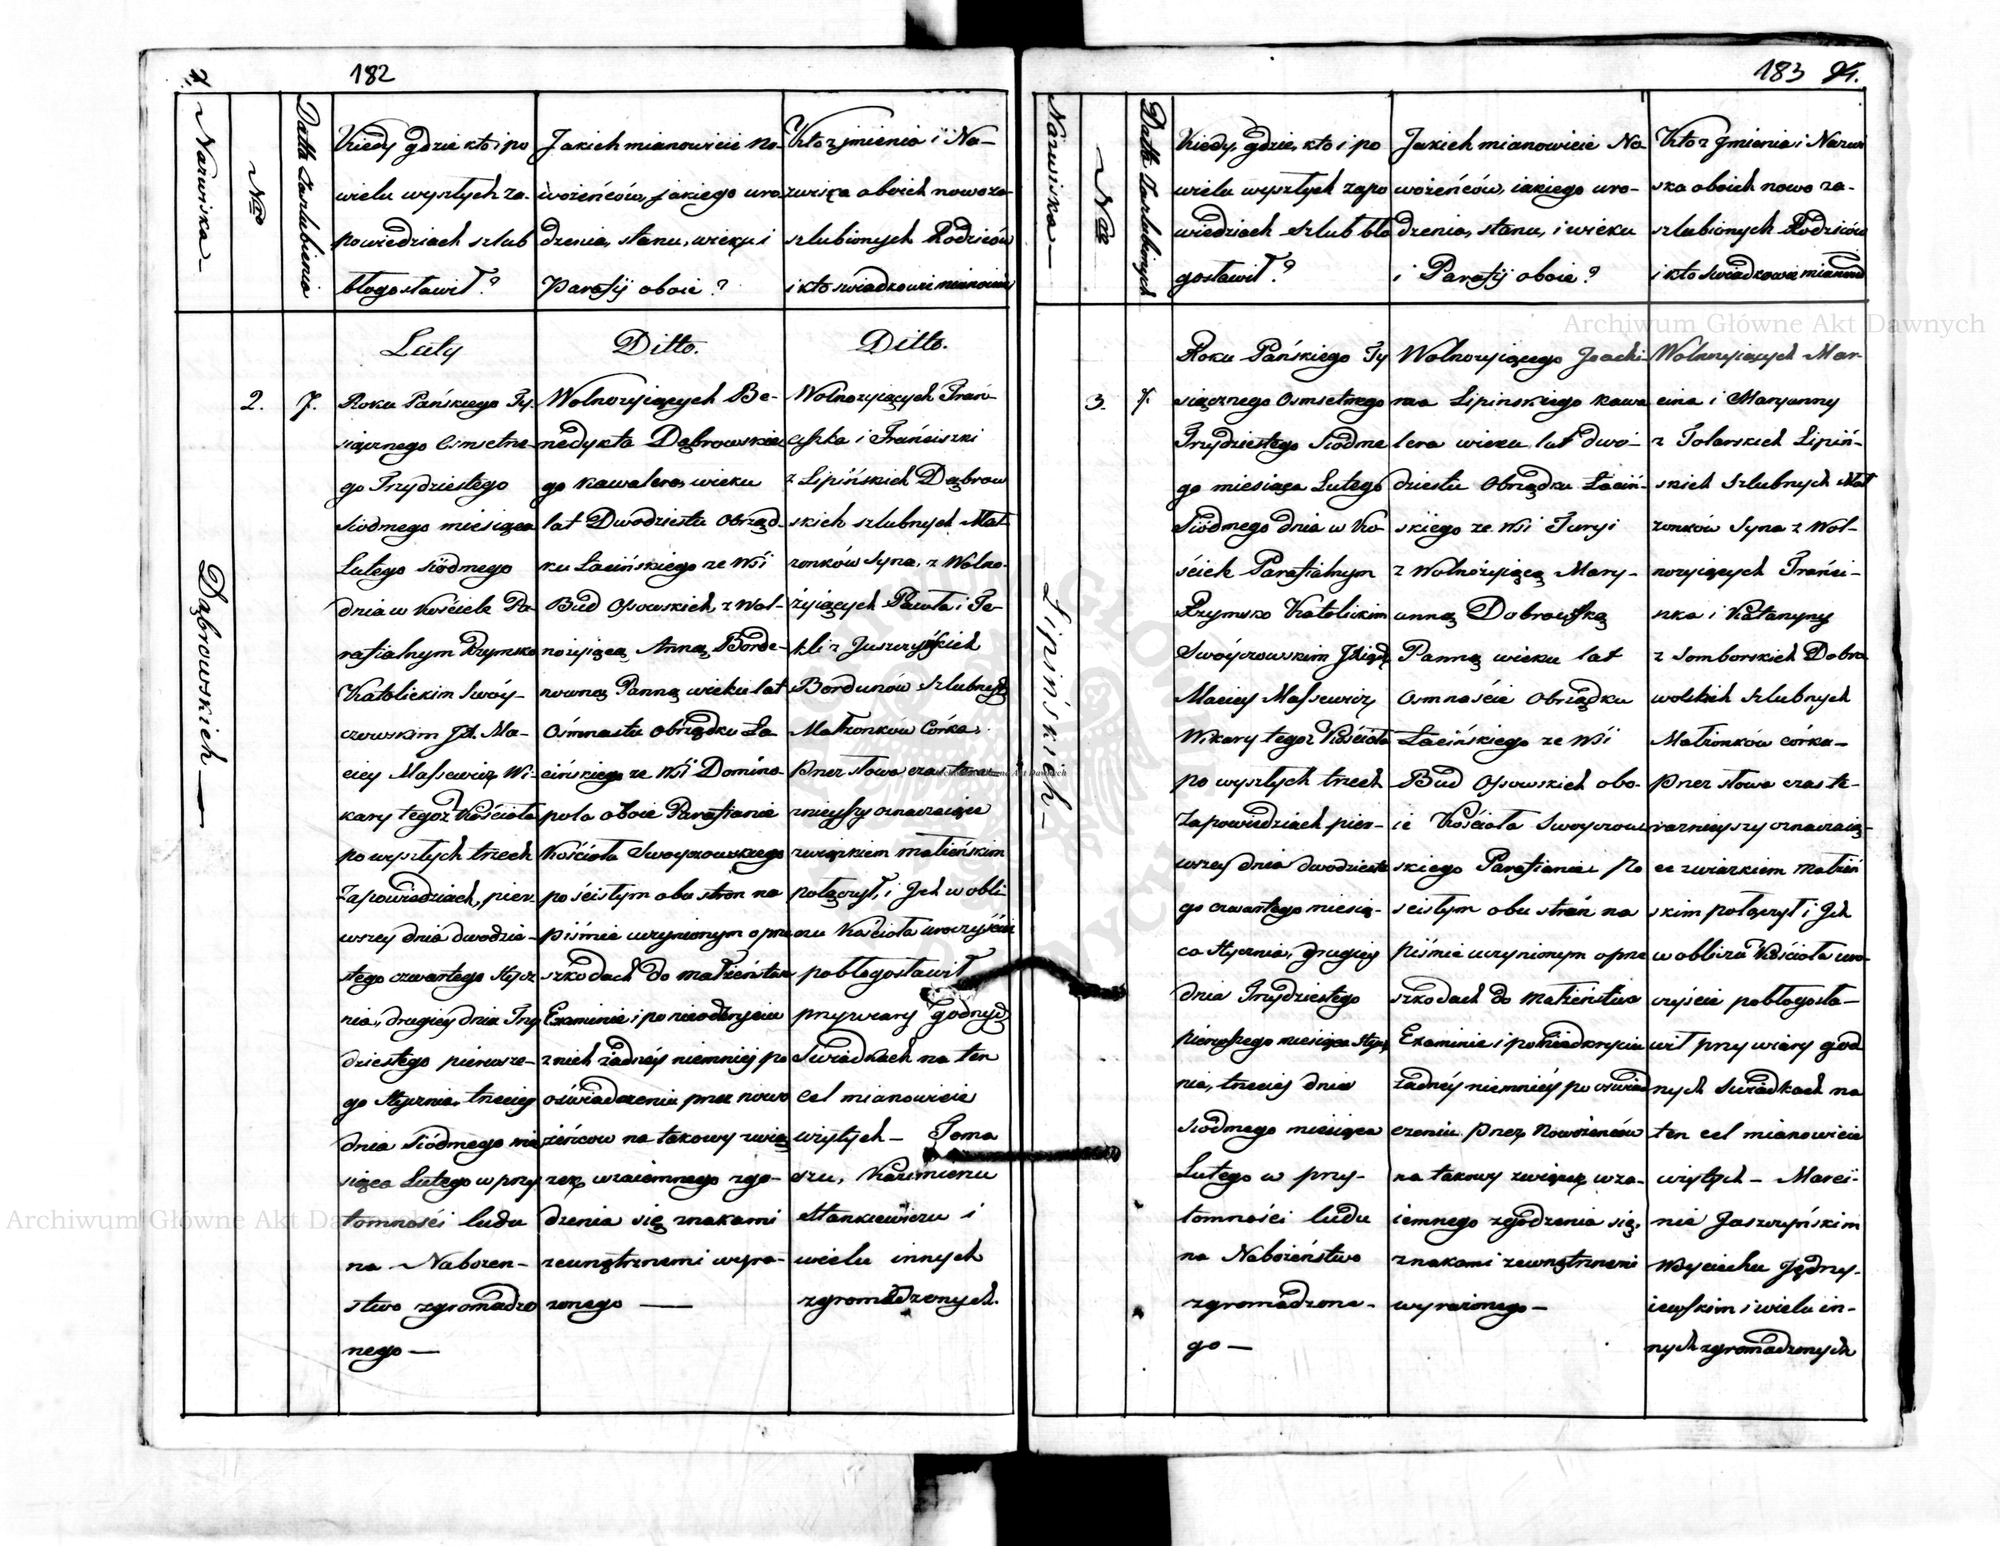 182
Nazwiska
Nro
Datta Zaslubienia
Kiedy gdzie kto i po
wielu wyszłych za-
powiedziach szlub
błogosławił?
Jakich mianowicie No-
wożeńców, jakiego uro
dzenia, stanu, wieku i
Parafij oboie?
Kto z jmienia i Na-
zwiska oboich nowoza-
szlubionych Rodziców
i kto swiadkowie mianowicie
Dąbrowskich
2.
7.
Luty
Roku Pańskiego Ty-
siącznego Osmsetne
go Trzydziestego
siodmego miesiąca
Lutego siódmego
dnia w Kościele Pa-
rafialnym Rzymsko
Katolickim Swóy-
czowskim JX. Ma-
ciey Massewicz Wi-
kary tegoż Kościoła
po wyszłych trzech
Zapowiedziach, pier
wszey dnia dwódzie-
stego czwartego stycz
nia, drugiey dnia Trzy
dziestego pierwsze-
go stycznia, trzeciey
dnia siódmego mie
siąca Lutego w przy
tomności ludu
na Nabożeń-
stwo zgromadzo
nego —
Ditto.
Wolnożyiących Be-
nedykta Dąbrowskie
go kawalera, wieku
lat Dwódziestu obrząd-
ku Łacińskiego ze Wsi
Bud Ossowskich, z Wol-
nożyiącą Anną Bordu-
nowną Panną wieku lat
Ośmnastu obrządku Ła
cińskiego ze Wsi Domino-
pola oboie Parafianie
Kościoła Swoyczowskiego
po ścisłym obu stron na
piśmie uczynionym o prze
szkodach do małżeństwa
Examinie i po nieodkryciu
z nich żadnéy niemniéy po
oświadczeniu przez nowo
żeńców na takowy zwią
zek wzaiemnego zgo-
dzenia się znakami
zewnętrznemi wyra-
żonego —
Ditto.
Wolnożyiących Fran-
ciszka i Franciszki
z Lipińskich Dąbrow
skich szlubnych Mał
żonków Syna, z Wolno-
żyiących Pawła i Te-
kli z Juszczyńskich
Bordunów szlubnych
Małżonków Córka.
przez słowa czas teraź-
nieyszy oznaczaiące
związkiem małżeńskim
połączył, i Jch w obli
czu Kościoła uroczyście
pobłogosławił
przy wiary godnych
Swiadkach na ten
cel mianowicie
wziętych — Toma
szu, Kazimierzu
Stankiewiczu i
wielu innych
zgromadzonych.
183
Nazwiska
Nro
Datta Zaslubionych
Kiedy, gdzie, kto i po
wielu wyszłych zapo
wiedziach szlub bło
gosławił?
Jakich mianowicie No-
wożeńców, iakiego uro-
dzenia, stanu, i wieku
i Parafij oboie?
Kto z Jmienia i Nazwi
ska oboich nowo za-
szlubionych Rodziców
i kto swiadkowie mianowi
Lipińskich
3.
7.
Roku Pańskiego Ty
siącznego Osmsetnego
Trzydziestego Siodme
go miesiąca Lutego
Siódmego dnia w Ko-
ściele Parafialnym
Rzymsko Katolickim
Swóyczowskim JXiądz
Maciey Massewicz
Wikary tegoż Kościoła
po wyszłych trzech
Zapowiedziach pier-
wszey dnia dwodzieste
go czwartego miesią-
ca stycznia, drugiey
dnia Trzydziestego
piérwszego miesiąca stycz
nia, trzeciey dnia
siódmego miesiąca
Lutego w przy-
tomności ludu
na Nabożeństwo
zgromadzone-
go —
Wolnożyiącego Joachi-
ma Lipinskiego kawa
lera wieku lat dwó-
dziestu obrządku Łaciń-
skiego ze Wsi Turyi
z Wolnożyiącą Mary-
anną Dobrowską
Panną wieku lat
Osmnaście obrządku
Łacińskiego ze Wsi
Bud Ossowskich obo-
ie Kościoła Swoyczow
skiego Parafianie Po
ścisłym obu strón na
piśmie uczynionym o prze
szkodach do małżeństwa
Examinie i po nieodkryciu
żadnéy niemniéy po oświad
czeniu przez Nowożeńców
na takowy związek wza-
iemnego zgodzenia się
znakami zewnętrznemi
wyrażonego —
Wolnożyiących Mar-
cina i Maryanny
z Tolarskich Lipiń-
skich szlubnych Mał
żonków Syna z Wol-
nożyiących Franci-
szka i Katarzyny
z Somborskich Dobro
wolskich szlubnych
Małżonków córka —
przez słowa czas te-
raznieyszy oznaczaią-
ce związkiem małżeń
skim połączył i Jch
w obliczu Kościoła uro-
czyście pobłogosła-
wił przy wiary god
nych swiadkach na
ten cel mianowicie
wziętych — Marci-
nie Juszczyńskim
Woyciechu Jędrzy-
iewskim i wielu in-
nych zgromadzonych
Archiwum Główne Akt Dawnych
Archiwum Główne Akt Dawnych